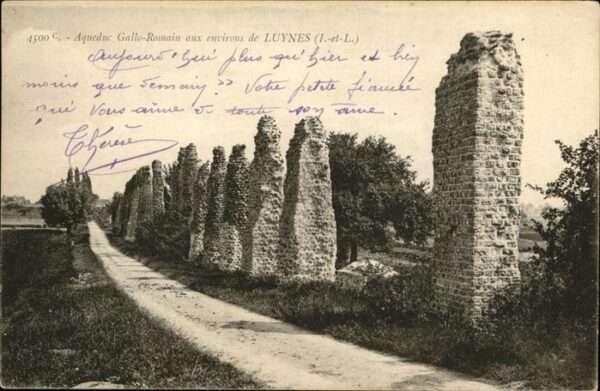 4500 C. - Aqueduc Gallo-Romain aux environs de LUYNES (I.-et-L.)
Aujourd'hui plus qu'hier et bien
moins que demain !! Votre petite fiancée
qui vous aime de toute son âme.
Thérèse